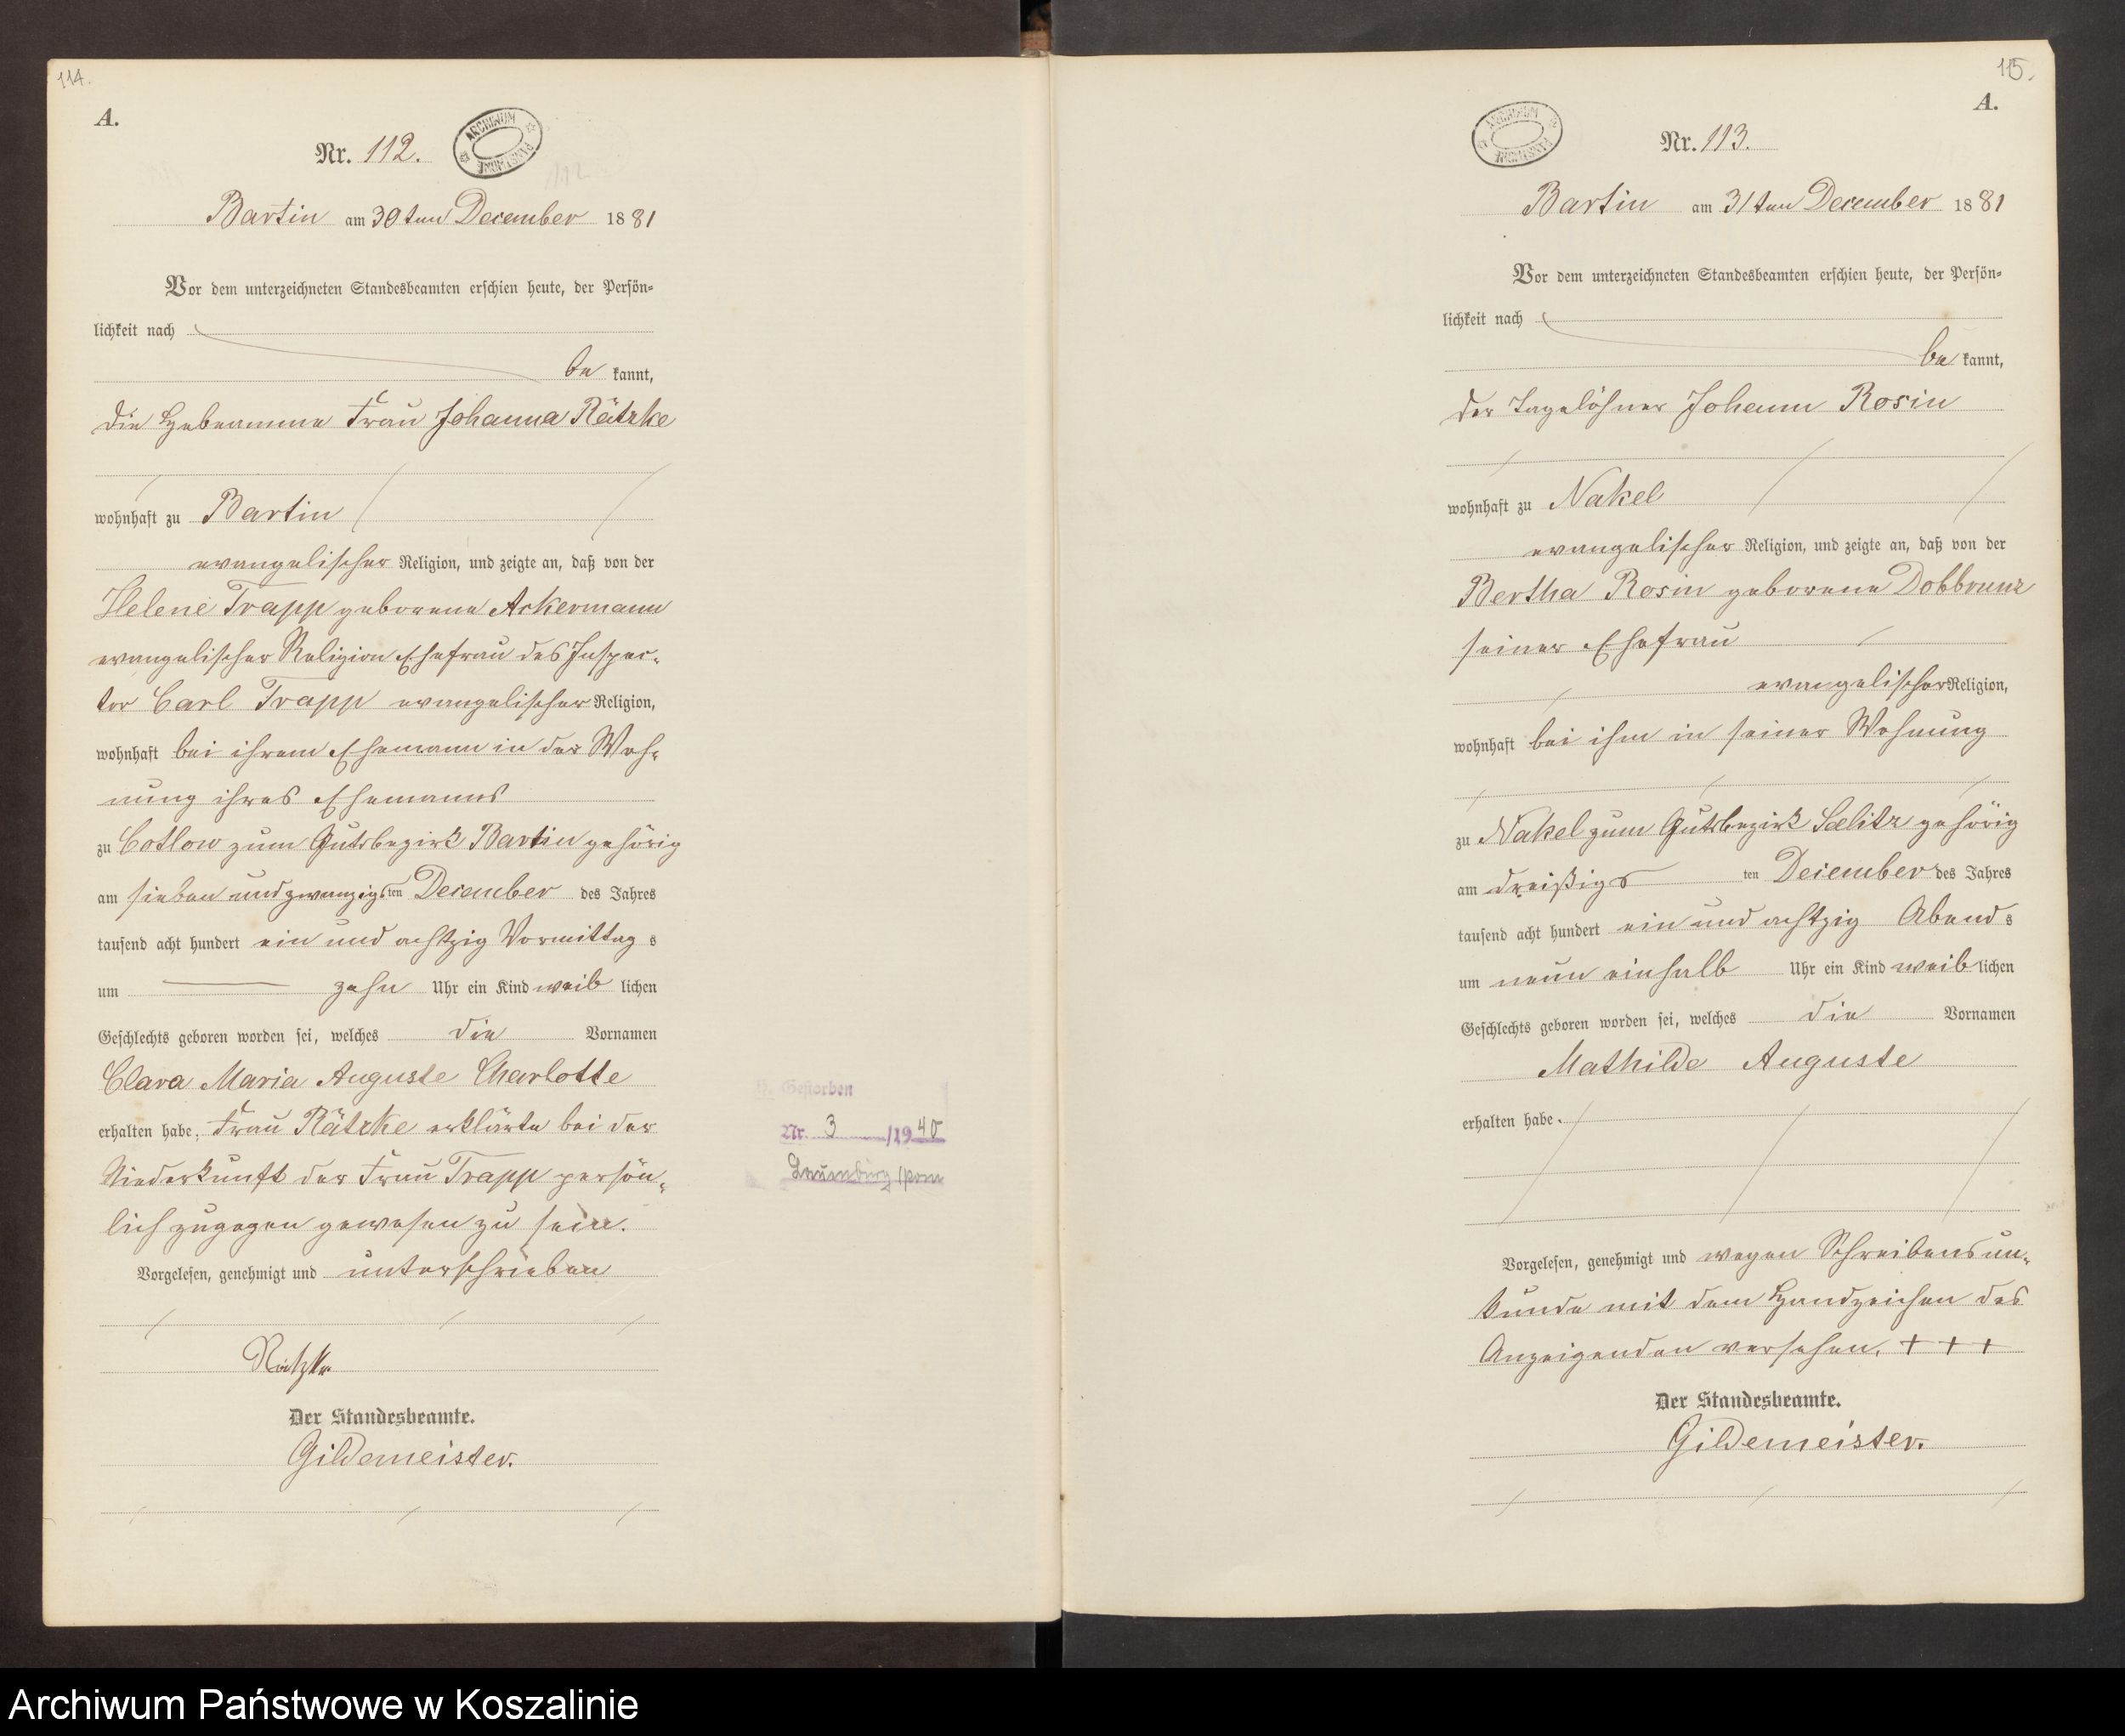 114.
A.
ARCHIWUM PAŃSTWOWE
Nr. 112.
Bartin am 30ten December 1881
Vor dem unterzeichneten Standesbeamten erschien heute, der Persön-
lichkeit nach
be kannt,
die Hebeamme Frau Johanna Rätzke
wohnhaft zu Bartin
evangelischer Religion, und zeigte an, daß von der
Helene Trapp geborene Ackermann
evangelischer Religion Ehefrau des Inspec-
tor Carl Trapp evangelischer Religion,
wohnhaft bei ihrem Ehemann in der Woh-
nung ihres Ehemanns
zu Cotlow zum Gutsbezirk Bartin gehörig
am sieben und zwanzigsten December des Jahres
tausend acht hundert ein und achtzig Vormittags
um zehn Uhr ein Kind weiblichen
Geschlechts geboren worden sei, welches die Vornamen
Clara Maria Auguste Charlotte
erhalten habe. Frau Rätzke erklärte bei der
Niederkunft der Frau Trapp persön-
lich zugegen gewesen zu sein.
Vorgelesen, genehmigt und unterschrieben
Rätzke
Der Standesbeamte.
Gildemeister.
Gestorben
Nr. 3 /1940
Lauenburg /Pom
115.
A.
ARCHIWUM PAŃSTWOWE
Nr. 113.
Bartin am 31ten December 1881
Vor dem unterzeichneten Standesbeamten erschien heute, der Persön-
lichkeit nach
be kannt,
der Tagelöhner Johann Rosin
wohnhaft zu Nakel
evangelischer Religion, und zeigte an, daß von der
Bertha Rosin geborene Dobbrunz
seiner Ehefrau
evangelischer Religion,
wohnhaft bei ihm in seiner Wohnung
zu Nakel zum Gutsbezirk Selitz gehörig
am dreißigsten December des Jahres
tausend acht hundert ein und achtzig Abends
um neun einhalb Uhr ein Kind weiblichen
Geschlechts geboren worden sei, welches die Vornamen
Mathilde Auguste
erhalten habe.
Vorgelesen, genehmigt und wegen Schreibensun-
kunde mit dem Handzeichen des
Anzeigenden versehen. + + +
Der Standesbeamte.
Gildemeister.
Archiwum Państwowe w Koszalinie